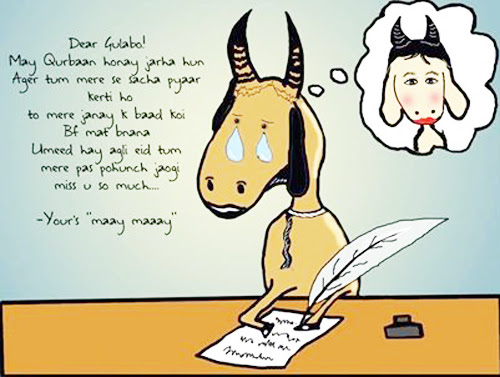 Dear Gulabo!
May Qurbaan honay jarha hun
Ager tum mere se sacha pyaar
kerti ho
to mere janay k baad koi
Bf mat bnana
Umeed hay agli eid tum
mere pas pohunch jaogi
miss u so much....
-Your's "maay maaay"